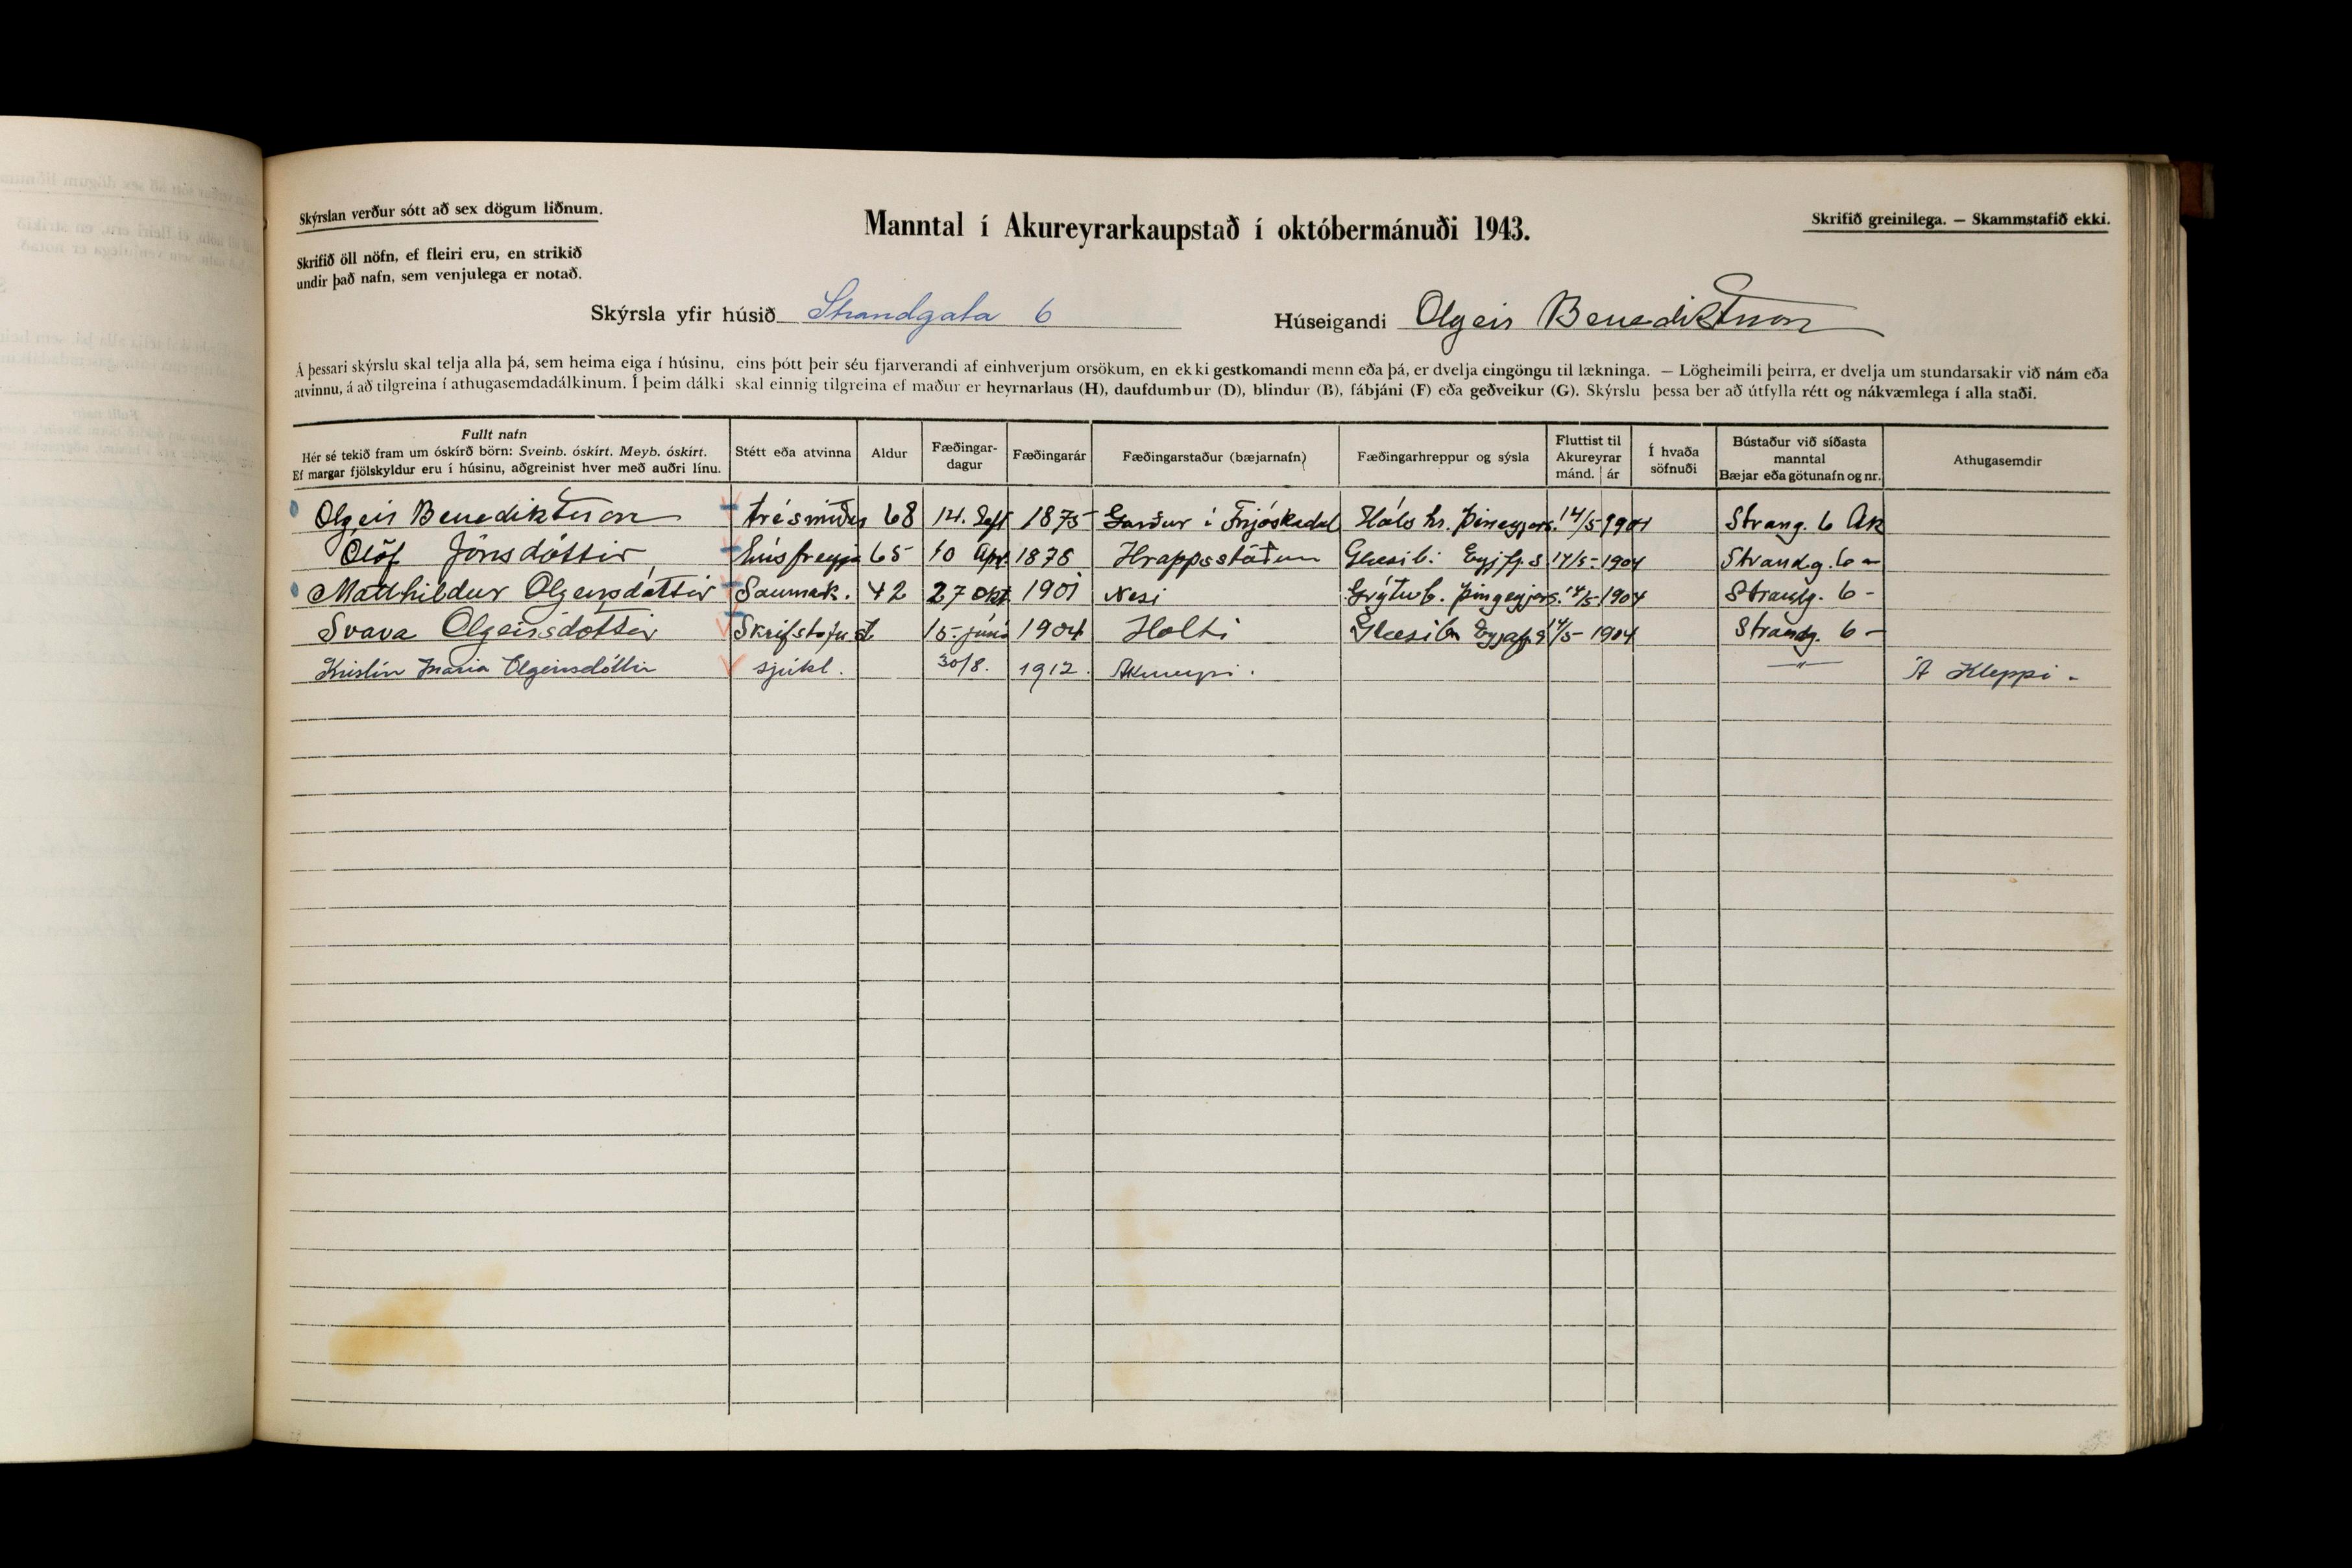 Skýrslan verður sótt að sex dögum liðnum.
Skrifið öll nöfn, ef fleiri eru, en strikið
undir það nafn, sem venjulega er notað.
Manntal í Akureyrarkaupstað í októbermánuði 1943.
Skrifið greinilega. — Skammstafið ekki.
Skýrsla yfir húsið Strandgata 6
Húseigandi Olgeir Benediktsson
Á þessari skýrslu skal telja alla þá, sem heima eiga í húsinu, eins þótt þeir séu fjarverandi af einhverjum orsökum, en ekki gestkomandi menn eða þá, er dvelja eingöngu til lækninga. — Lögheimili þeirra, er dvelja um stundarsakir við nám eða
atvinnu, á að tilgreina í athugasemdadálkinum. Í þeim dálki skal einnig tilgreina ef maður er heyrnarlaus (H), daufdumbur (D), blindur (B), fábjáni (F) eða geðveikur (G). Skýrslu þessa ber að útfylla rétt og nákvæmlega í alla staði.
Fullt nafn
Hér sé tekið fram um óskírð börn: Sveinb. óskírt. Meyb. óskírt.
Ef margar fjölskyldur eru í húsinu, aðgreinist hver með auðri línu.
Stétt eða atvinna
Aldur
Fæðingar-
dagur
Fæðingarár
Fæðingarstaður (bæjarnafn)
Fæðingarhreppur og sýsla
Fluttist til
Akureyrar
mánd. ár
Í hvaða
söfnuði
Bústaður við síðasta
manntal
Bæjar eða götunafn og nr.
Athugasemdir
Olgeir Benediktsson trésmiður 68 14. Sept 1875 Garður í Fnjóskadal Háls hr. Þingeyjars. 14/5 1904 Strang. 6 Ak
Ólöf Jónsdóttir húsfreyja 65 10 Apr. 1878 Hrappsstöðum Glæsib. Eyjfj.s 14/5- 1904 Strandg. 6 -
Matthildur Olgeirsdóttir Saumak. 42 27 Okt 1901 Nesi Grýtub. Þingeyjars. 14/5 1904 Strandg. 6 -
Svava Olgeirsdóttir Skrifstofust 15. júní 1904 Holti Glæsib. Eyjafj.s 14/5- 1904 Strandg. 6 -
Kristín María Olgeirsdóttir sjúkl. 30/8. 1912. Akureyri. — " — Á Kleppi -